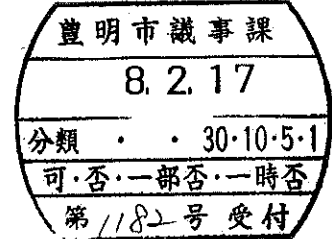 豊明市議事課
8.2.17
分類 ・ ・ 30・10・5・1
可・否・一部否・一時否
第1182号 受付